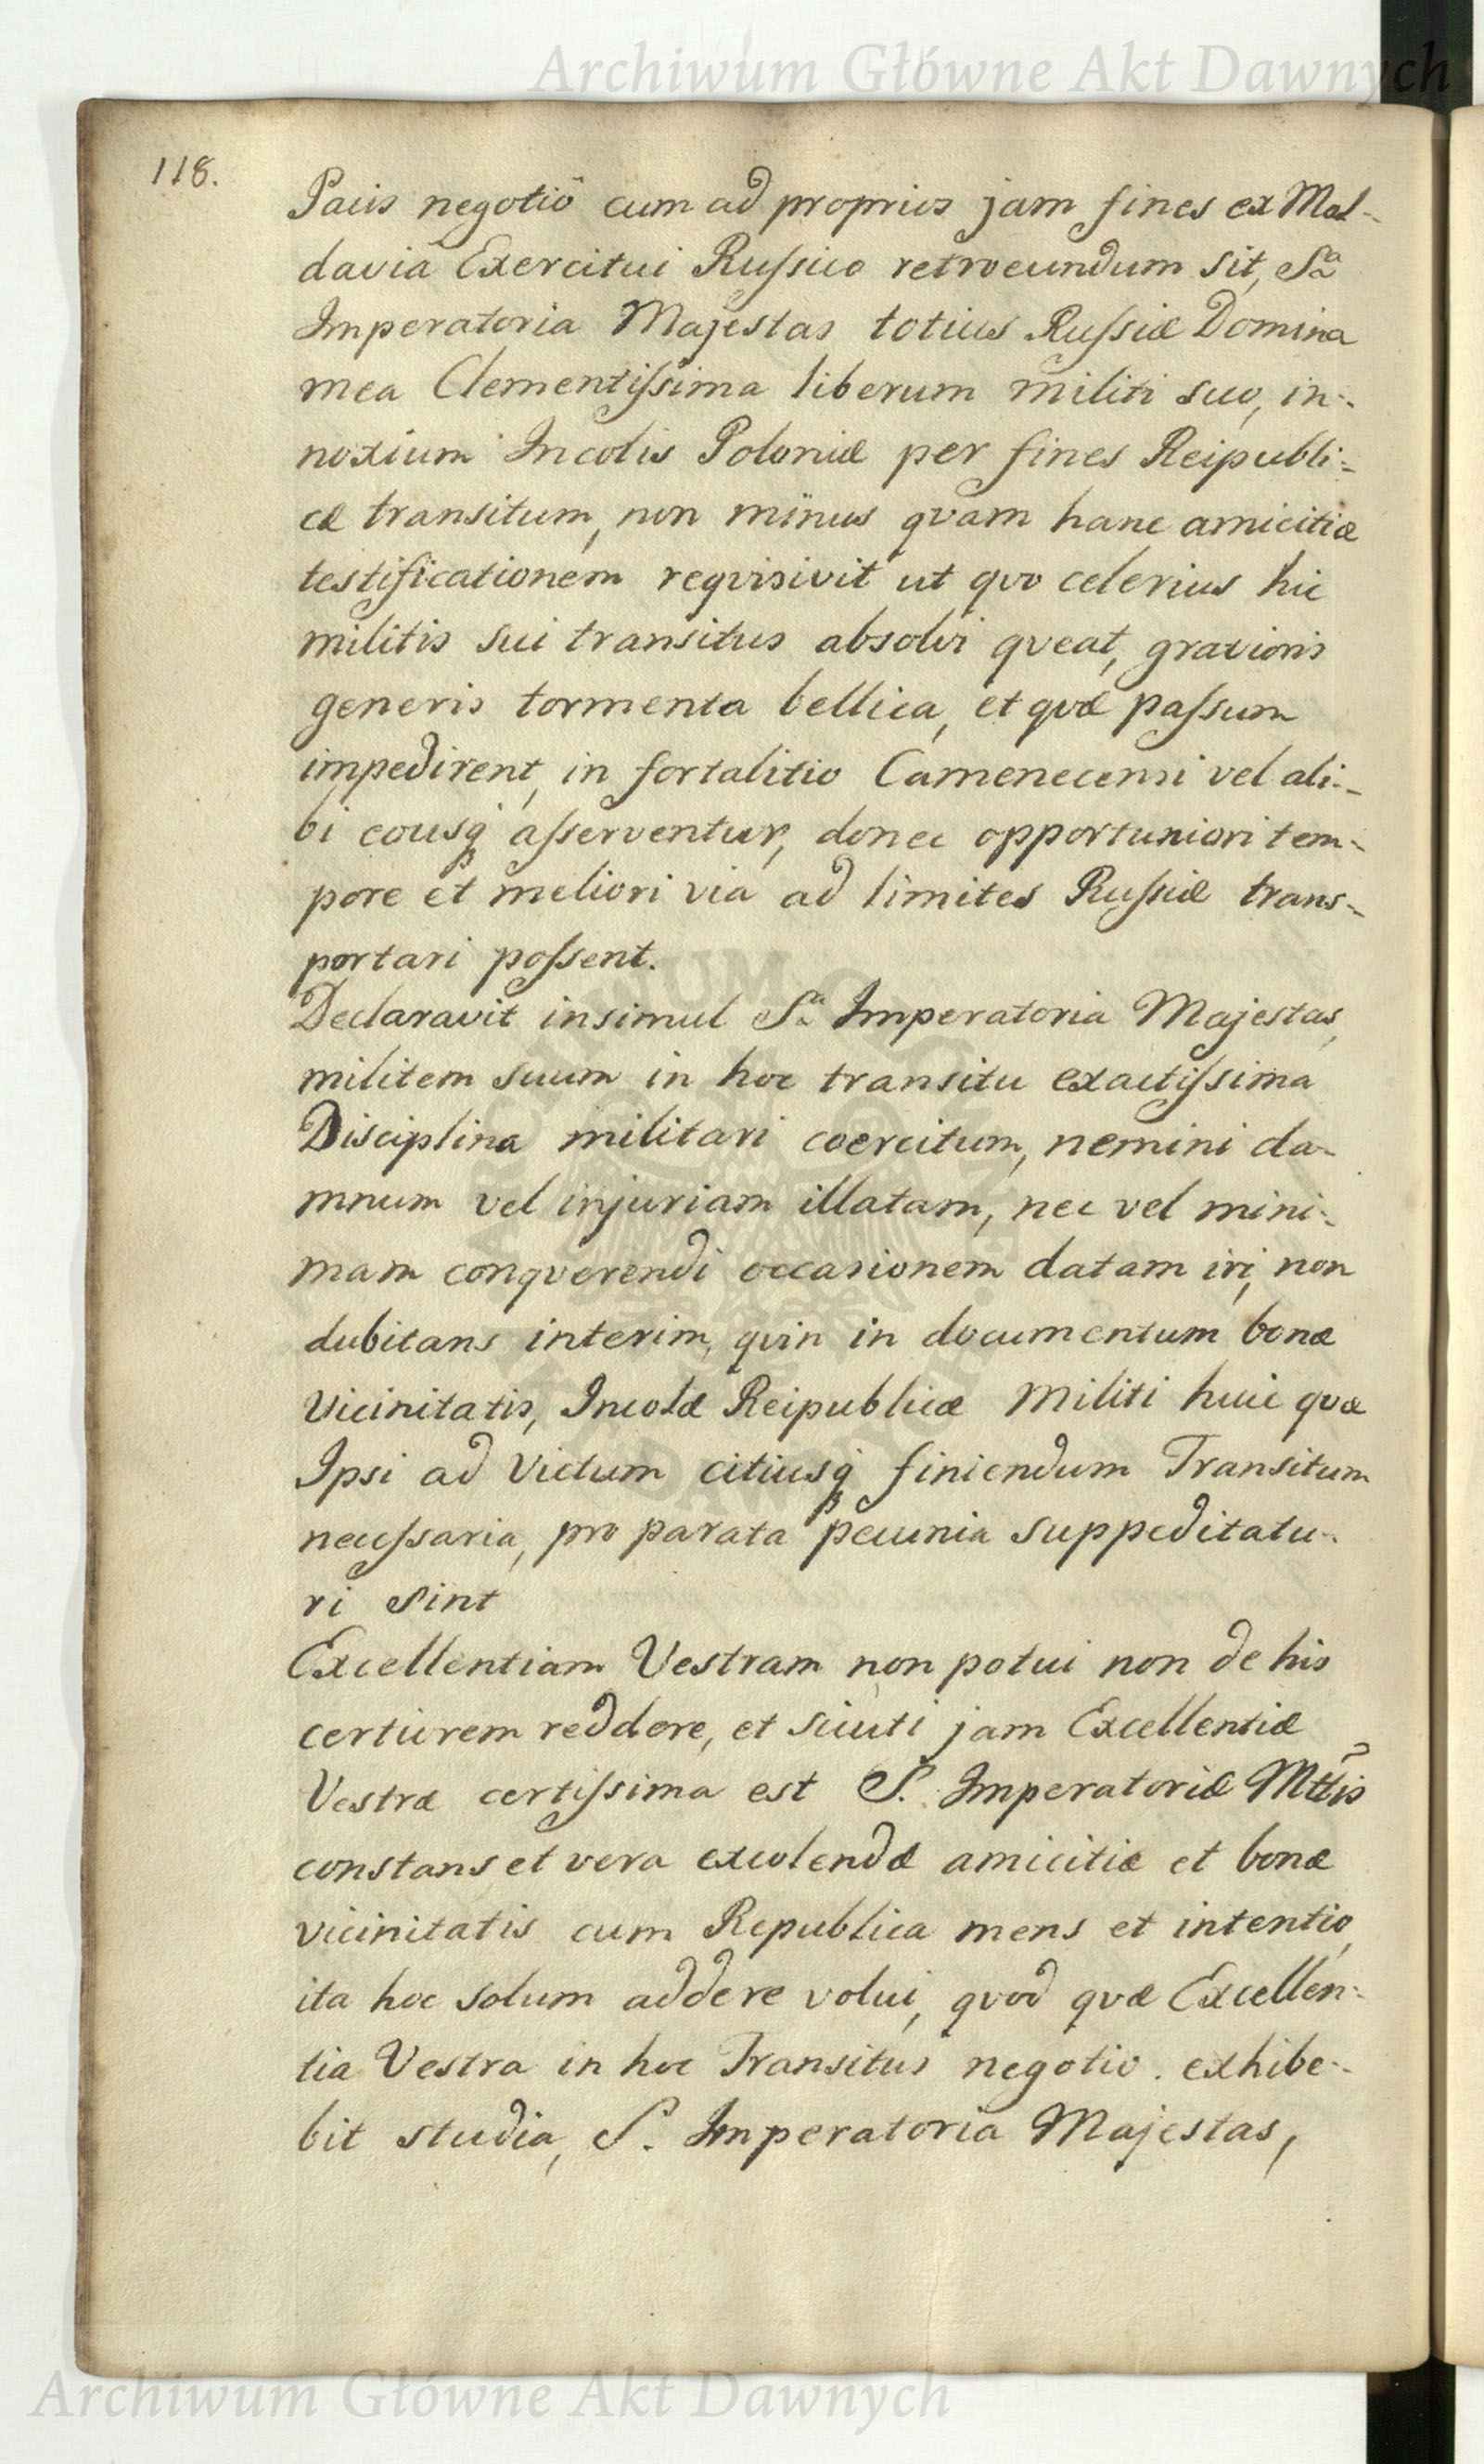 Archiwum Główne Akt Dawnych
118.
Pacis negotiô cum ad proprios jam fines ex Mol-
davia Exercitui Russico retroeundum sit, Sa
Imperatoria Majestas totius Russiæ Domina
mea Clementissima liberum militi suo, in-
noxium Incolis Poloniæ per fines Reipubli=
cæ transitum, non minus qvam hanc amicitiæ
testificationem reqvisivit ut qvo celerius hic
militis sui transitus absolvi qveat, gravioris
generis tormenta bellica, et qvæ passum
impedirent, in fortalitio Camenecensi vel ali-
bi eousq asserventur, donec opportuniori tem-
pore et meliori via ad limites Russiæ trans-
portari possent.
Declaravit insimul Sa Imperatoria Majestas,
militem suum in hoc transitu exactissima
Disciplina militari coercitum, nemini da-
mnum vel injuriam illatam, nec vel mini-
mam conqverendi occasionem datam iri, non
dubitans interim, qvin in documentum bonæ
Vicinitatis, Incolæ Reipublicæ Militi huic qvæ
Ipsi ad Victum citiusq finiendum Transitum
necessaria, pro parata pecunia suppeditatu-
ri sint
Excellentiam Vestram non potui non de his
certiorem reddere, et sicuti jam Excellentiæ
Vestræ certissima est S. Imperatoriæ Mttis
constans et vera excolendæ amicitiæ et bonæ
vicinitatis cum Republica mens et intentio,
ita hoc solum addere volui, qvod qvæ Excellen-
tia Vestra in hoc Transitus negotio. exhibe-
bit studia, S. Imperatoria Majestas,
Archiwum Główne Akt Dawnych